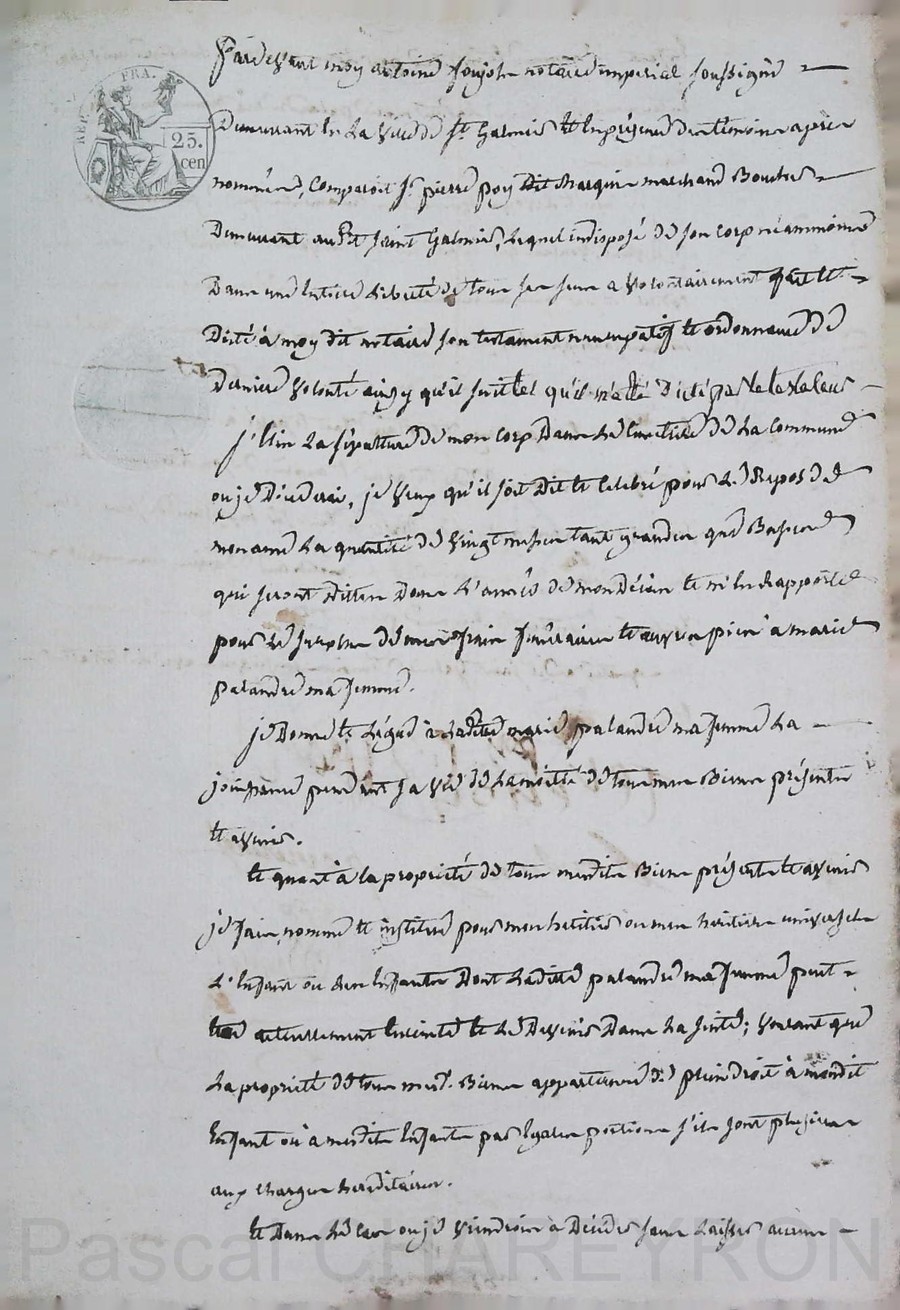 REP. FRA.
25.
cen
Pardevant moy antoine notaire imperial soussigné
Demeurant en La ville de st. Galmier Et En présence des temoins après
nommés, Comparoit sr. pierre poy Dit Marquis marchand Boucher
Demeurant audit saint Galmier, Lequel indisposé de son corp néanmoins
Dans une Entiere Liberté de tous ses sens a volontairement fait Et
Dicté à moy dit notaire son testament nuncupatif Et ordonnance de
Derniere volonté ainsy qu'il suit tel qu'il m'a Eté Dicté par le testateur
j'Elis La sépulture de mon corp Dans Le Cimetiere de La Commune
ou je Décederai, je veux qu'il soit Dit Et Celebré pour Le Repos de
mon ame La quantité de vingt messes tant grandes que Basses
qui seront Dittes Dans L'année de mon Décès Et m'En Rapporte
pour Le surplus de mes frais funéraires Et œuvres pies à marie
palandre ma femme.
je Donne Et Légue à Laditte marie palandre ma femme La
jouissance pendant sa vie de La moitié de tous mes Biens présents
Et avenir.
Et quant à la propriété de tous mesdits Biens présents Et avenir
je fais, nomme Et institue pour mon heritier ou mes heritiers universels
L'Enfant ou des Enfants Dont Laditte palandre ma femme peut
actuellement Enceinte Et Le Devenir Dans La suite; voulant que
La propriété de tous mesd. Biens appartienne de plein droit à mondit
Enfant ou à mesdits Enfants par Egales portions s'ils sont plusieurs
aux charges hereditaires.
Et Dans Le Cas ou je viendrois à Décéder sans Laisser aucuns
Pascal CHAREYRON